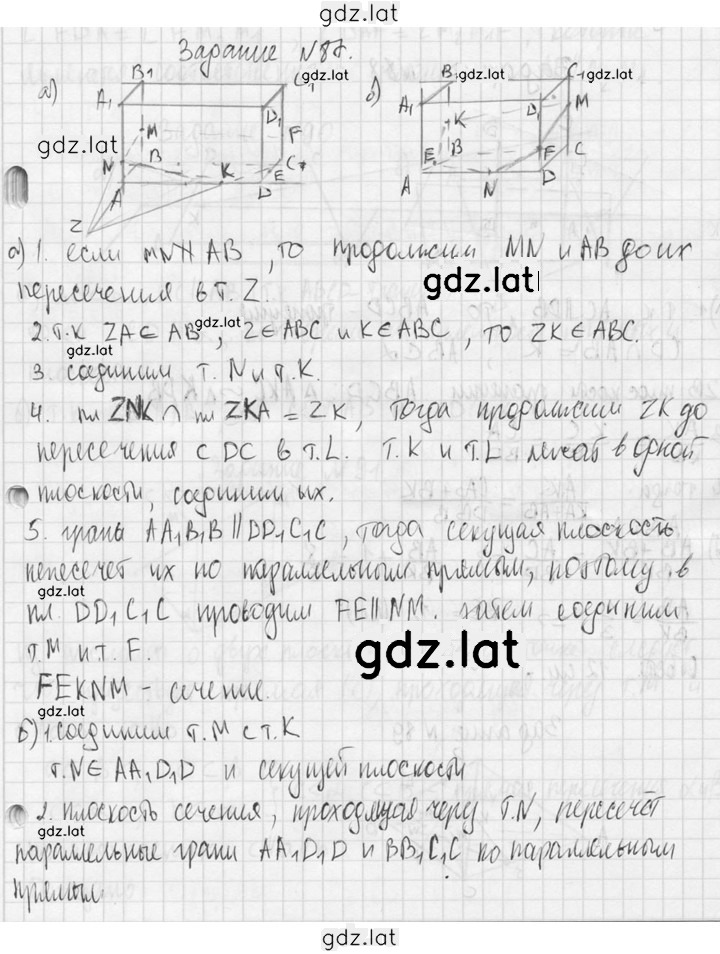 gdz.lat
Задание №87.
а)
B1
gdz.lat
C1
A1
D1
gdz.lat
M
F
N
B
K
C
A
D
E
Z
б)
B1
gdz.lat
C1
A1
D1
M
K
E
B
F
C
A
N
D
а) 1. если MN∦AB, то продолжим MN и AB до их
gdz.lat
пересечения в т. Z.
2. т.к ZA⊂AB gdz.lat, Z∈ABC и K∈ABC, то ZK∈ABC.
gdz.lat
3 соединим т. N и т. K.
4. пл ZNK ∩ пл ZKA = ZK, тогда продолжим ZK до
gdz.lat
пересечения с DC в т. L. т. K и т. L лежат в одной
плоскости, соединим их.
5. грани AA1B1B ∥ DD1C1C, тогда секущая плоскость
gdz.lat
пересечёт их по параллельным прямым, поэтому в
пл. DD1C1C проводим FE∥NM. затем соединим
gdz.lat
т. M и т. F.
gdz.lat
FEKNM - сечение.
gdz.lat
б) 1. соединим т. M с т. K
т. N∈ AA1D1D и секущей плоскости
2. плоскость сечения, проходящая через т. N, пересечёт
gdz.lat
параллельные грани AA1D1D и BB1C1C по параллельным
прямым
gdz.lat